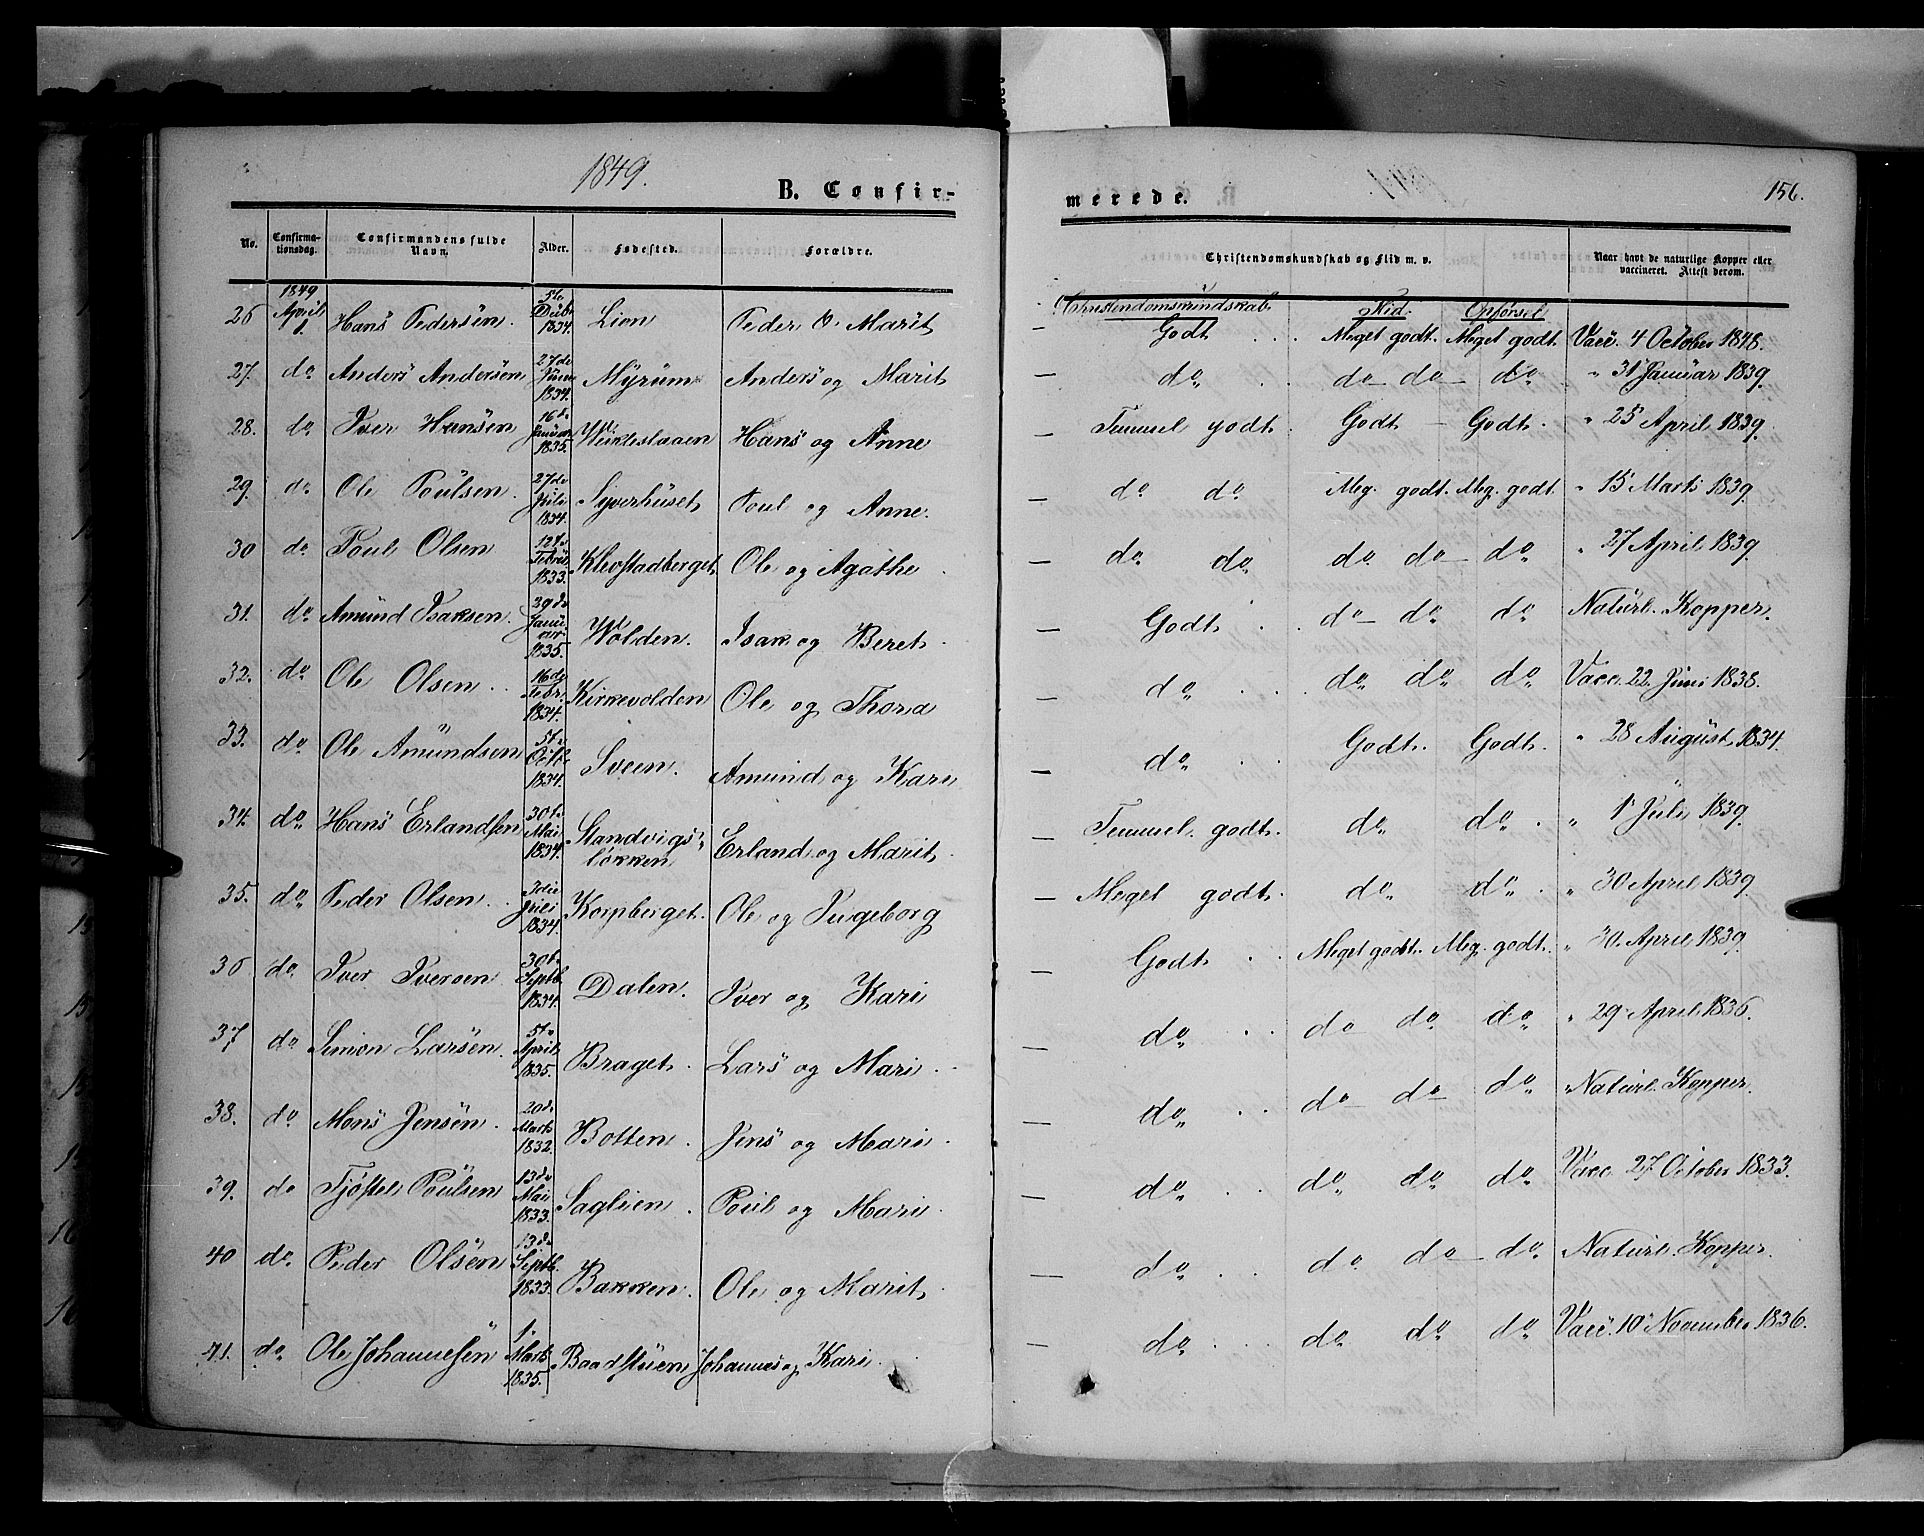 1849.
B. Confir-
merede.
156.
No. Confirma-tionsdag. Confirmandens fulde Navn. Alder. Fødested. Forældre. Christendomskundskab og Flid m. v. Naar havt de naturlige Kopper eller vaccineret. Attest derom.
Christendomskundskab Flid. Opførsel
26 1849 April 1. Hans Pedersen. 5te Decbr 1834. Lien Peder & Marit — Godt . . . Meget godt. Meget godt. Vacc. 4 October 1848.
27. do Anders Andersen 27de Juni 1834. Myrum Anders og Marit — do . . do do do " 31 Januar 1839.
28. do Iver Hansen 16de Januar 1835. Hans og Anne — Temmel godt. Godt — Godt. " 25 April 1839.
29. do Ole Poulsen. 27de Juli 1834. Syverhuset Poul og Anne. — do do Meg. godt. Meg. godt. " 15 Marts 1839.
30 do Poul Olsen 12te Febru 1833. Klevstadberget Ole og Agathe — do do do do do " 27 April 1839
31. do Amund Isaksen. 29de Januar 1835. Wolden. Isak og Beret — Godt . . do do do Naturl. Kopper.
32. do Ole Olsen 16de Febr. 1834. Kirkevolden Ole og Thora — do . . . do do do Vacc. 22. Juni 1838.
33. do Ole Amundsen 5te Octbr 1834. Sveen. Amund og Kari — do . . Godt. Godt. " 28 August 1834.
34. do Hans Erlandsen 30te Mai 1834. Standvigs-løkken Erland og Marit. — Temmel. godt. do do . " 1 Juli 1839.
35. do Peder Olsen 3die Juli 1834. Korpberget. Ole og Ingeborg — Meget godt. do do . " 30 April 1839
36 do Iver Iversen 30te Septb. 1834. Dalen. Iver og Kari — Godt . . Meget godt. Meg. godt. " 30. April 1839.
37 do Simon Larsen. 5te April 1835. Braget. Lars og Mari — do . . do do do " 29 April 1836.
38. do Mons Jensen. 20de Marts 1832. Botten. Jens og Mari — do . . do do do Naturl. Kopper.
39. do Tjøstel Poulsen 13de Mai 1833. Saglien. Poul og Mari. — do . . do do do Vacc. 27 October 1833.
40 do Peder Olsen 13de Septb. 1833. Bakken. Ole og Marit. — do . . do do do Naturl. Kopper.
41. do Ole Johannesen 1. Marts 1835. Baadstuen Johannes og Kari — do . . . do do do Vacc. 10 November 1836.